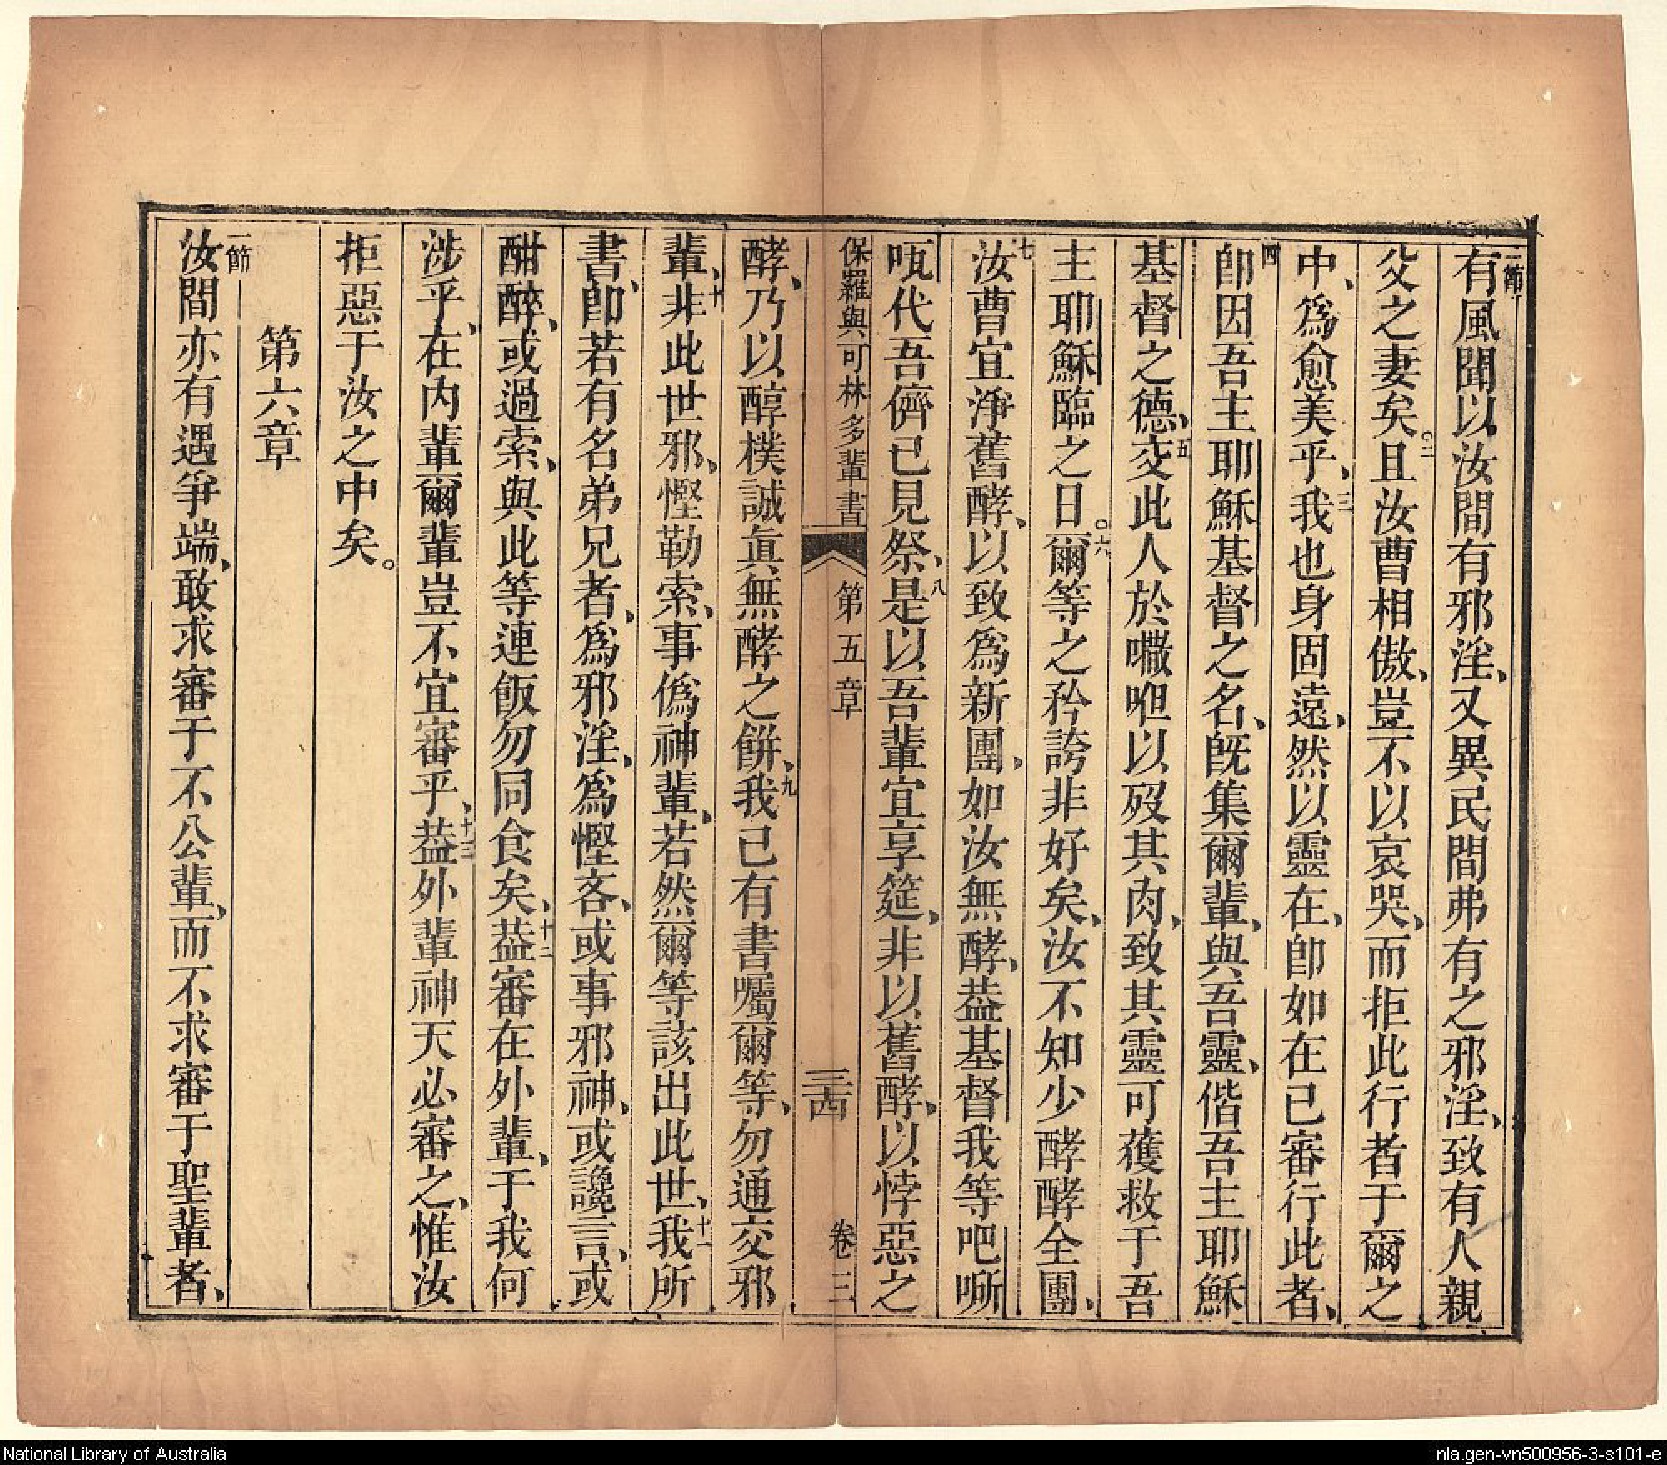 一節
有風聞以汝間有邪淫、又異民間弗有之邪淫、致有人親
父之妻矣。二且汝曹相傲、豈不以哀哭、而拒此行者于爾之
中、爲愈美乎、三我也身固遠、然以靈在、卽如在已審行此者、
四卽因吾主耶穌基督之名、旣集爾輩、與吾靈、偕吾主耶穌
基督之德、五交此人於㘔呾以歿其肉、致其靈可獲救于吾
主耶穌臨之日。六爾等之矜誇非好矣、汝不知少酵酵全團、
七汝曹宜淨舊酵、以致爲新團、如汝無酵、葢基督我等吧㗭
咓代吾儕已見祭、八是以吾輩宜享筵、非以舊酵、以悖惡之
保羅與可林多輩書 第五章 三四 卷三
酵、乃以醇樸誠眞無酵之餅、九我已有書囑爾等、勿通交邪
輩、十非此世邪、慳勒索、事僞神輩、若然爾等該出此世、十一我所
書、卽若有名弟兄者、爲邪淫、爲慳吝、或事邪神、或讒言、或
酣醉、或過索、與此等連飯勿同食矣、十二葢審在外輩、于我何
涉乎、在内輩爾輩豈不宜審乎、十三葢外輩神天必審之、惟汝
拒惡于汝之中矣。
第六章
一節
汝間亦有遇爭端、敢求審于不公輩、而不求審于聖輩者、
National Library of Australia
nla.gen-vn500956-3-s101-e